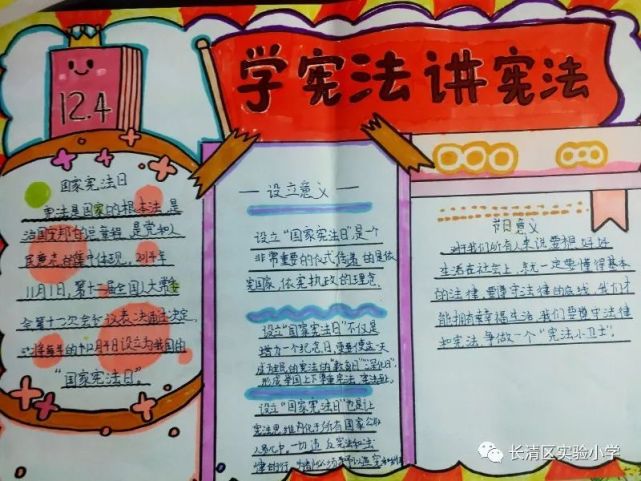 学宪法讲宪法
12.4
国家宪法日
宪法是国家的根本法,是
治国安邦的总章程,是党和人
民意志的集中体现。2014年
11月1日,第十二届全国人大常委
会第十一次会议表决通过决定,
将每年的12月4日设立为我国的
“国家宪法日”。
设立意义
设立“国家宪法日”是一个
非常重要的仪式,传递的是依
宪国家,依宪执政的理念。
设立“国家宪法日”不仅是
增加一个纪念日,更要使这一天
成为全民的宪法的“教育日”“深化日”,
形成举国上下尊重宪法、宪法至上
设立“国家宪法日”也是让
宪法思维内化于所有国家公职
人员心中,一切违反宪法和法
律的行
节日意义
对我们所有人来说要想好好
生活在社会上,就一定要懂得基本
的法律,要遵守法律的底线,我们才
能拥有幸福生活,我们要遵守法律
和宪法,争做一个“宪法小卫士”。
长清区实验小学